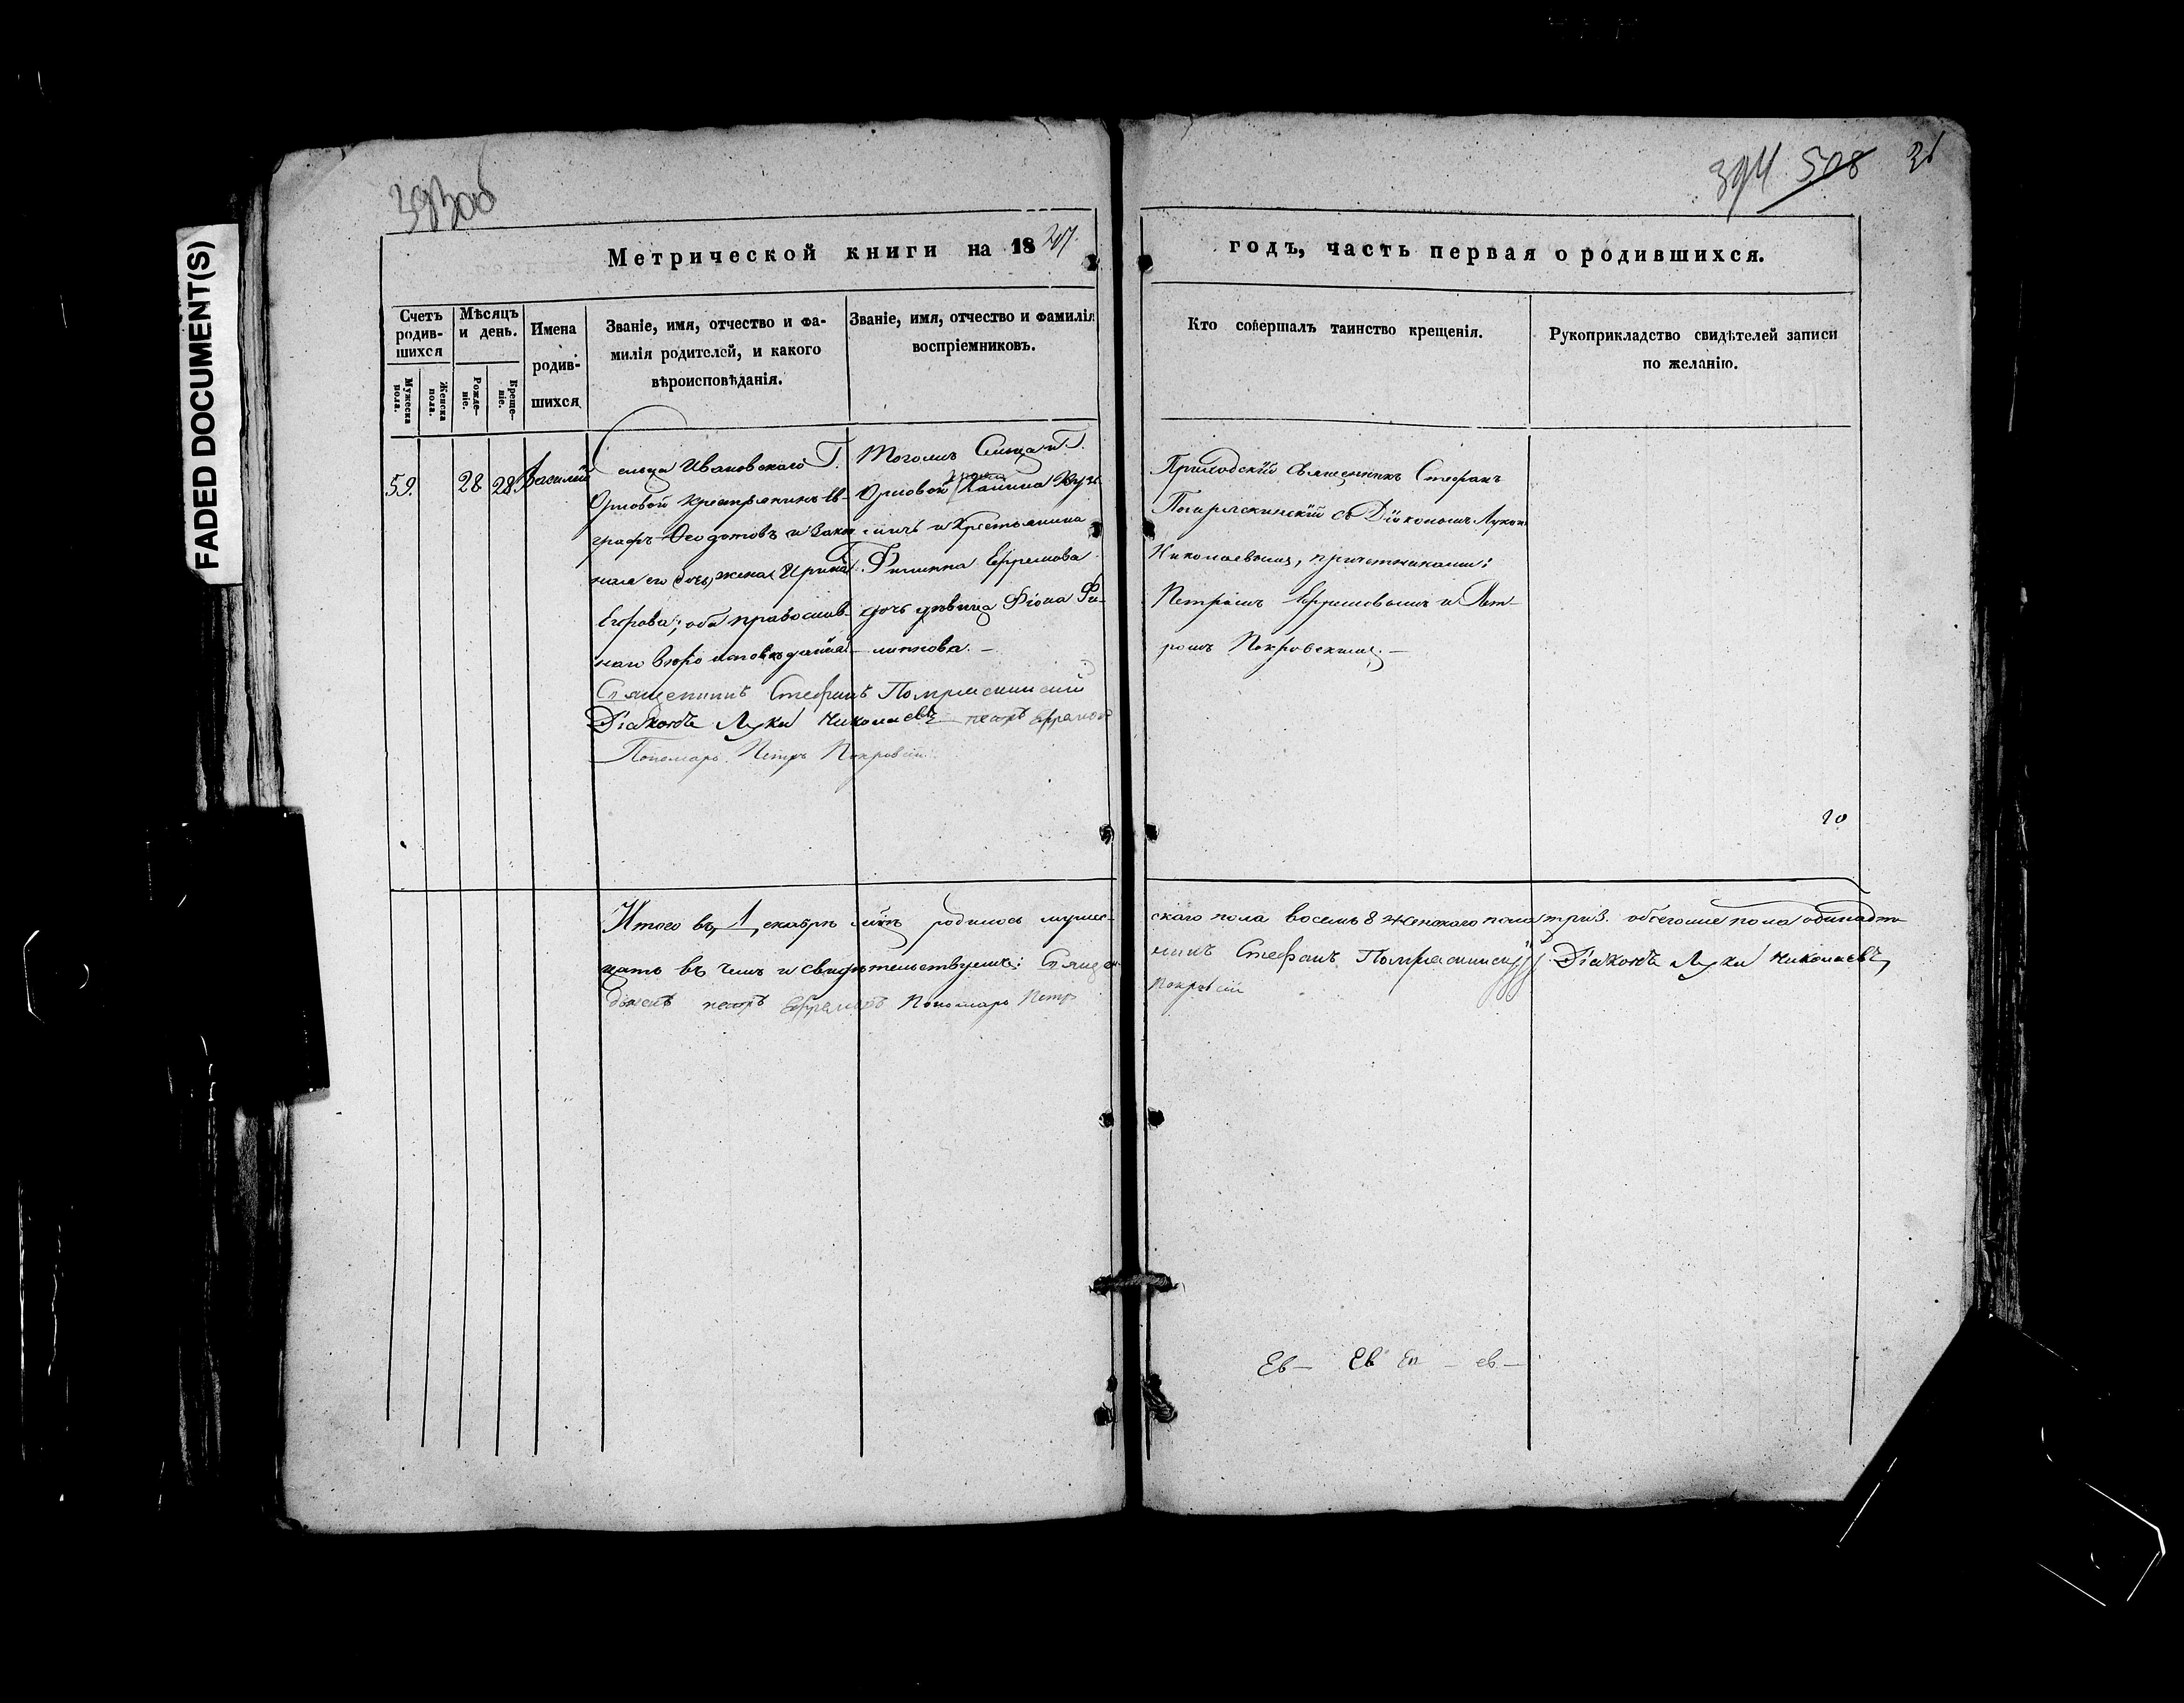 FADED DOCUMENT(S)
393об
394 508 31
Метрической книги на 1847.
годъ, часть первая о родившихся.
Счетъ родив-шихся
Мужеска пола.
Женска пола.
Мѣсяцъ и день.
Рожде-ніе.
Креще-ніе.
Имена родив-шихся
Званіе, имя, отчество и фа-
милія родителей, и какого
вѣроисповѣданія.
Званіе, имя, отчество и фамилія
воспріемниковъ.
Кто совершалъ таинство крещенія.
Рукоприкладство свидѣтелей записи
по желанію.
59. 28 28 Василій
Сельца Ивановскаго Г.
Орловой крестьянинъ Ев-
графъ Ѳеодотовъ и закон
ная его жена Ирина
Егорова; оба православ-
наго вѣроисповѣданія.
Тогожъ Сельца Г.
Орловой
и Крестьянина
Филиппа Ефремова
дочь дѣвица Фіона Фи-
липпова. –
Приходскій Священникъ Стефанъ
съ Діакономъ Лукою
Николаевымъ, причетниками:
Петромъ Ефремовымъ и Пет-
ромъ Покровскимъ. –
Священникъ Стефанъ
Діаконъ Лука Николаевъ Петръ Ефремовъ
Пономарь Петръ Покровскій
Итого въ Декабрѣ родилось мужес-
скаго пола восемь 8 женскаго пола три 3. обоего пола одинадца-
цать въ чемъ и свидѣтельствуемъ: Священ-
никъ Стефанъ Діаконъ Лука Николаевъ,
Петръ Ефремовъ Пономарь Петръ
Покровскій
Ев – Ев Ев – ев –